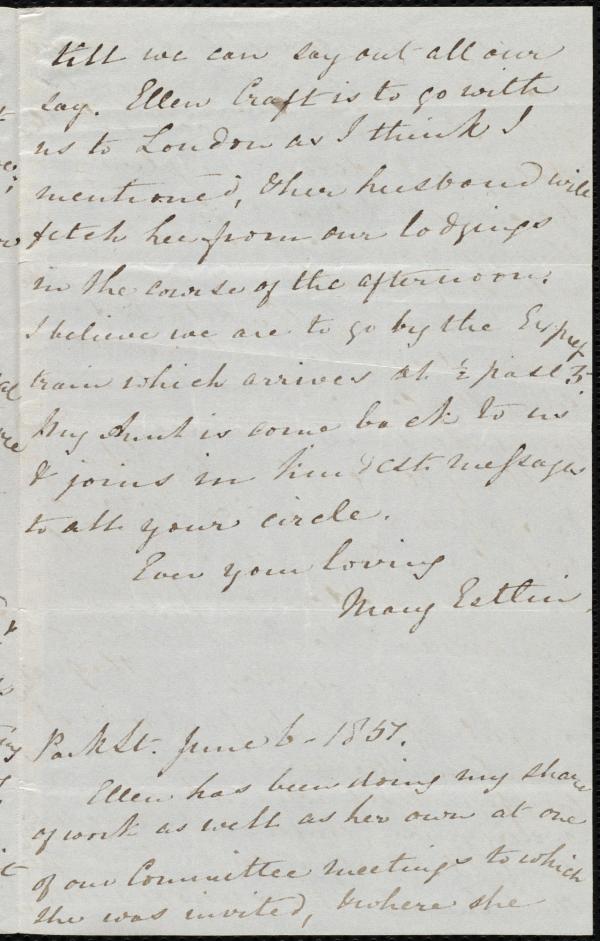 till we can say out all our
say. Ellen Craft is to go with
us to London as I think I
mentioned, & her husband will
fetch her from our lodgings
in the course of the afternoon.
I believe we are to go by the Express
train which arrives at ½ past 3.
My Aunt is come back to us
& joins in kindest messages
to all your circle.
Ever your loving
Mary Estlin.
Park St. June 6 - 1851.
Ellen has been doing my share
of work as well as her own at one
of our Committee meetings to which
she was invited, & where she